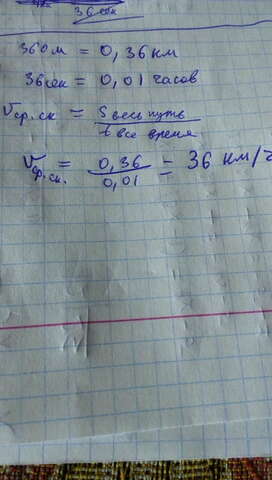 36 сек
360 м = 0,36 км
36 сек = 0,01 часов
Vср.ск = S весь путь / t все время
Vср.ск. = 0,36 / 0,01 = 36 км/ч